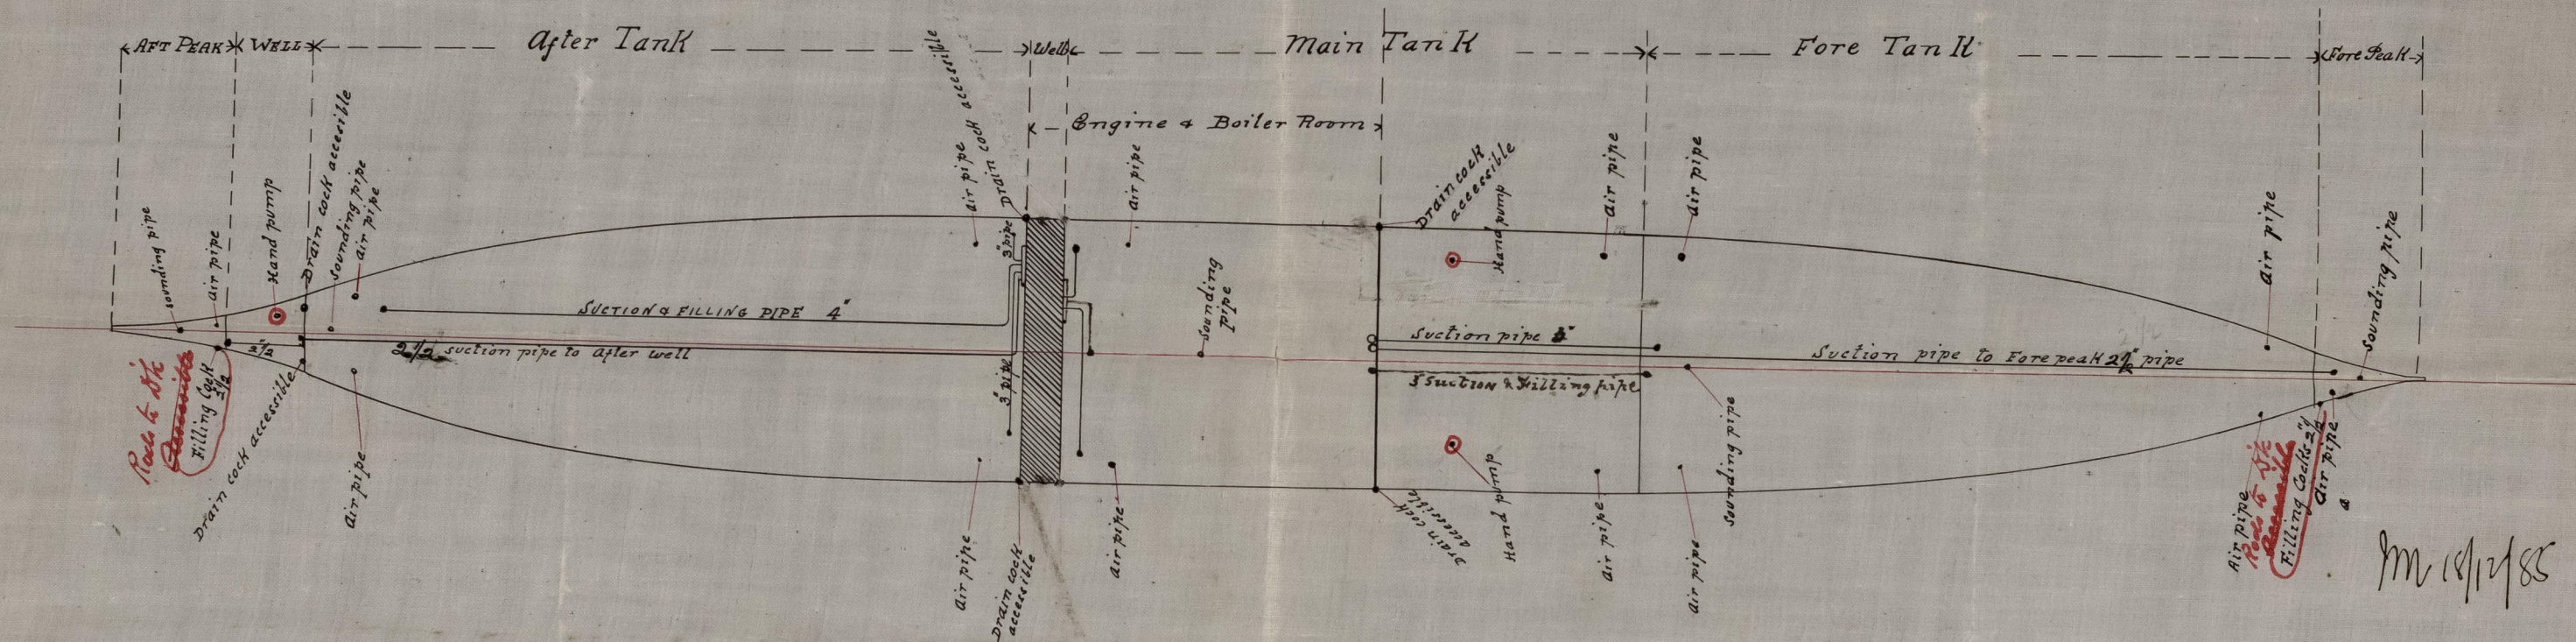 AFT PEAK
WELL
After Tank
Well
Main Tank
Fore Tank
Fore Peak
Engine & Boiler Room
sounding pipe
air pipe
Hand pump
Drain cock accessible
sounding pipe
air pipe
air pipe
Drain cock accessible
air pipe
Drain cock
accessible
Hand pump
air pipe
air pipe
air pipe
sounding pipe
3" pipe
SUCTION & FILLING PIPE 4"
sounding
pipe
2"1/2
2 1/2 suction pipe to After well
3" pipe
Suction pipe
Suction & Filling pipe
Suction pipe to Fore peak 2 1/2" pipe
Rods to D'k
Accessible
Filling Cock
2"1/2
Drain cock accessible
air pipe
air pipe
Drain cock
accessible
air pipe
Drain cock
accessible
Hand pump
air pipe
air pipe
sounding pipe
Air pipe
Rods to D'k
Accessible
Filling Cocks 2"1/2
air pipe
18/12/85